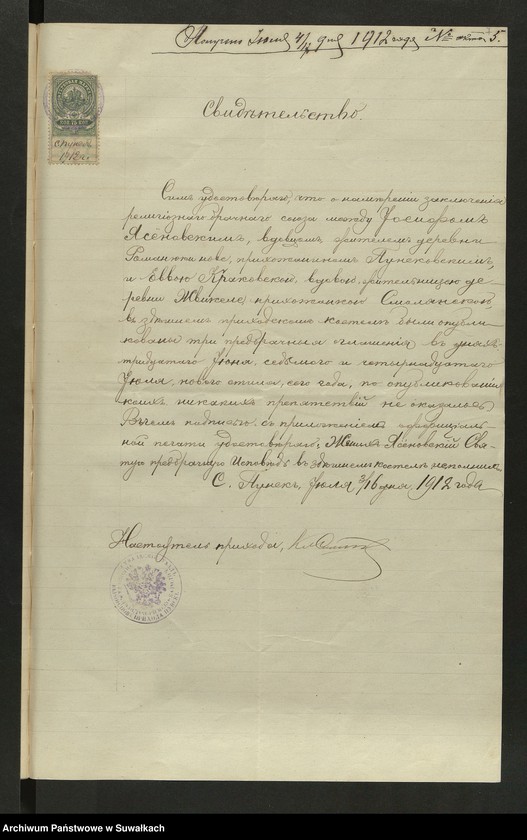 Получено Июля 4/17 дня 1912 года № 5.
Свидѣтельство.
Симъ удостовѣряю, что о намѣреніи заключенія
религіознаго брачнаго союза между Іосифомъ
Ясёновскимъ, вдовцомъ жителемъ деревни
прихожаниномъ Пунсковскимъ,
и Еввою Краковской, вдовою, жительницею де-
ревни Жвикеле, прихожанкою Смолянскою,
въ здѣшнемъ приходскомъ костелѣ были опубли-
кованы три предбрачныя оглашенія въ дняхъ
тридцатаго Іюня, седьмого и четырнадцатаго
Іюля, новаго стиля, сего года, по опубликованіи
коихъ никакихъ препятствій не оказалось,
В чемъ подписью съ приложеніемъ оффиціаль-
ной печати удостовѣряю. Женихъ Ясеновскій Свя-
тую предбрачную Исповѣдь въ здѣшнемъ костелѣ исполнилъ
С. Пунскъ, Іюля 3/16 дня, 1912 года
Настоятель прихода,
Archiwum Państwowe w Suwałkach